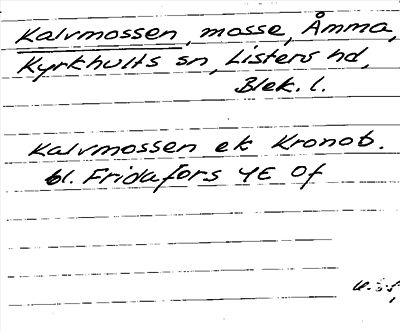 Kalvmossen, mosse, Åmma,
Kyrkhults sn, Listers hd,
Blek. l.
Kalvmossen ek Kronob.
bl. Fridafors 4E 0f